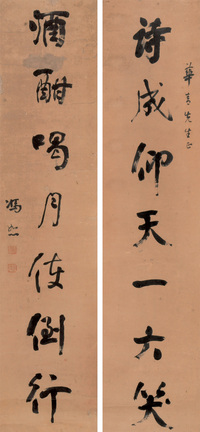 詩成仰天一大笑
華青先生正
酒酣喝月使倒行
馮煦